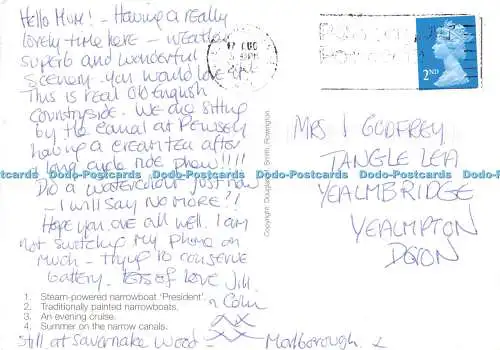 Hello Mum! - Having a really
lovely time here - weather
superb and wonderful
scenery. you would love it.
This is real Old English
countryside. We are sitting
by the canal at Pewsey
having a cream tea after
long cycle ride phew!!!!
Did a watercolour just now
- I will say no more?!
Hope you are all well. I am
not switching my phone on
much - trying to conserve
battery. Lots of love Jill
n Colin
xx
1. Steam-powered narrowboat 'President'.
2. Traditionally painted narrowboats.
3. An evening cruise.
4. Summer on the narrow canals.
Still at Savernake Wood - Marlborough.
Copyright: Douglas Smith,
2ND
MRS I GODFREY
TANGLE LEA
YEALMBRIDGE
YEALMPTON
DEVON
Dodo-Postcards Dodo-Postcards Dodo-Postcards Dodo-Postcards Dodo-Postcards